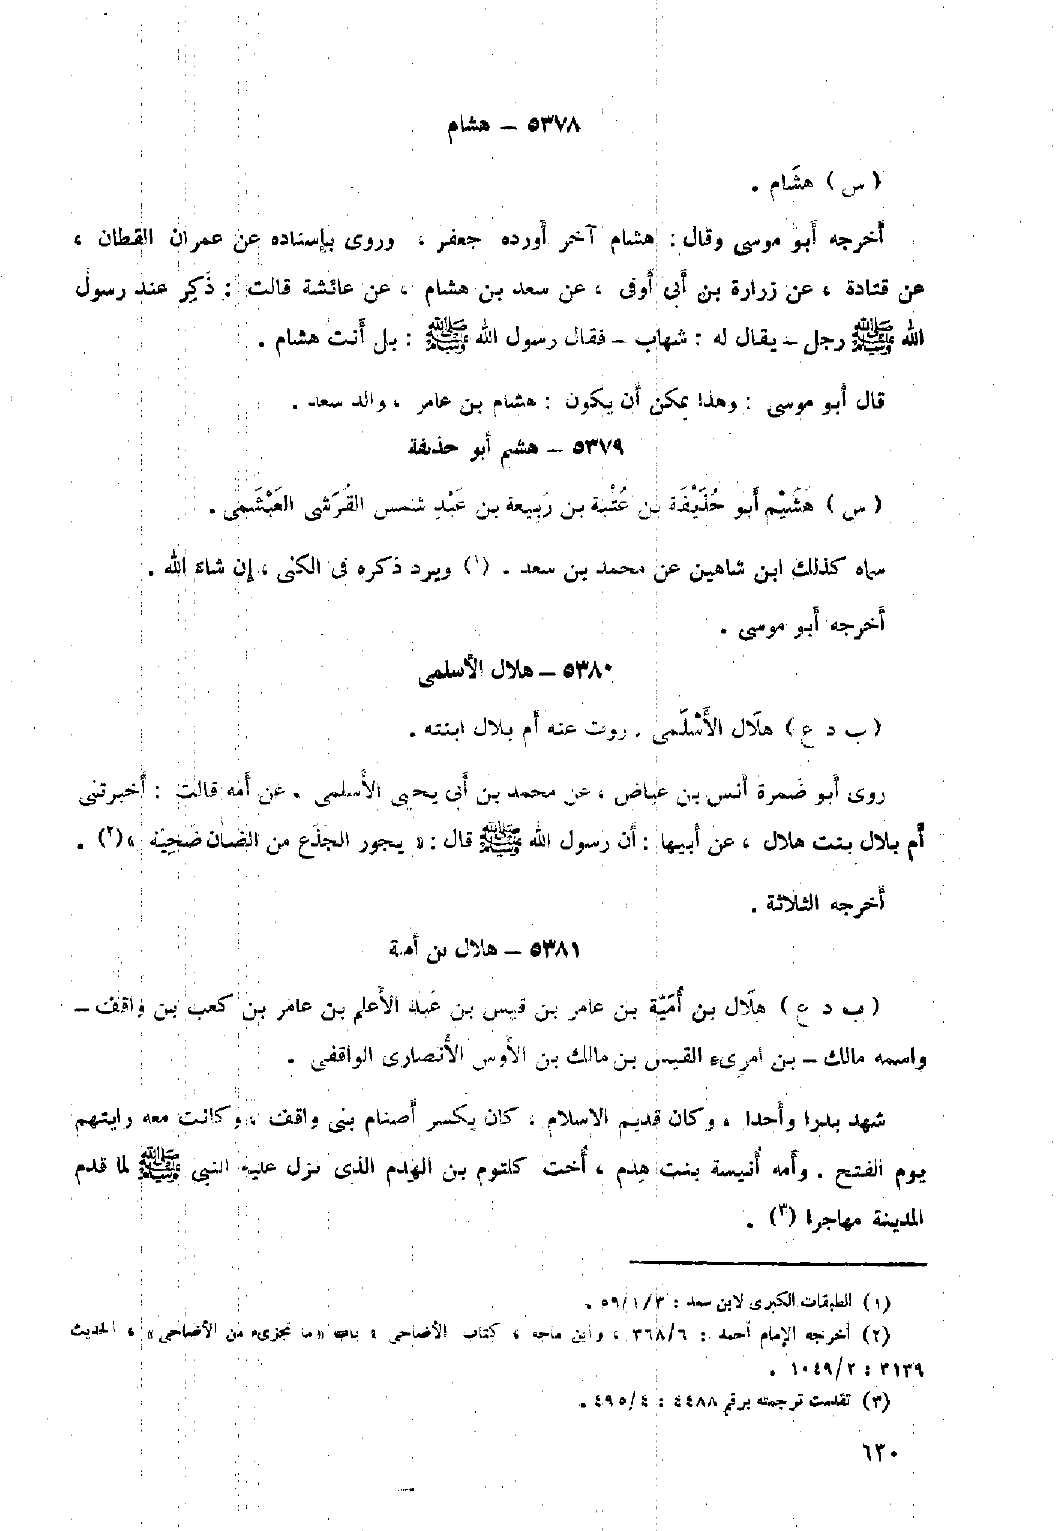 ٥٣٧٨ – هشام
( س ) هشَام .
أخرجه أبو موسى وقال : هشام آخر أورده جعفر ، وروى بإسناده عن عمران القطان ،
عن قتادة ، عن زرارة بن أبى أوفى ، عن سعد بن هشام ، عن عائشة قالت : ذُكِر عند رسول
الله ﷺ رجل – يقال له : شهاب – فقال رسول الله ﷺ : بل أنت هشام .
قال أبو موسى : وهذا يمكن أن يكون : هشام بن عامر ، والد سعد .
٥٣٧٩ – هشيم أبو حذيفة
( س ) هَشَيْم أبو حُذَيْفَة بن عُتْبة بن رَبيعة بن عَبْدِ شمس القُرَشى العَبْشَمى .
سماه كذلك ابن شاهين عن محمد بن سعد . (١) ويرد ذكره فى الكنى ، إن شاء الله .
أخرجه أبو موسى .
٥٣٨٠ – هلال الأسلمى
( ب د ع ) هلَال الأَسْلَمى . روت عنه أم بلال ابنته .
روى أبو ضمرة أنس بن عياض ، عن محمد بن أبى يحيى الأسلمى . عن أمه قالت : أخبرتنى
أم بلال بنت هلال ، عن أبيها : أن رسول الله ﷺ قال : « يجوز الجذَع من الضأن ضحيّة » (٢) .
أخرجه الثلاثة .
٥٣٨١ – هلال بن أمية
( ب د ع ) هلَال بن أُمَيّة بن عامر بن قيس بن عَبد الأعلم بن عامر بن كعب بن واقف –
واسمه مالك – بن امرىء القيس بن مالك بن الأوس الأنصارى الواقفى .
شهد بدرا وأحدا ، وكان قديم الاسلام ، كان يكسر أصنام بنى واقف ، وكانت معه رايتهم
يوم الفتح . وأمه أُنيسة بنت هِدم ، أُخت كلثوم بن الهِدم الذى نزل عليه النبى ﷺ لما قدم
المدينة مهاجرا (٣) .
(١) الطبقات الكبرى لابن سعد : ٥٩/١/٣ .
(٢) أخرجه الإمام أحمد : ٣٦٨/٦ ، وابن ماجه ، كتاب الأضاحى ، باب « ما تجزىء من الأضاحى » ، الحديث
٣١٣٩ : ١٠٤٩/٢ .
(٣) تقدمت ترجمته برقم ٤٤٨٨ : ٤٩٥/٤ .
٦٣٠